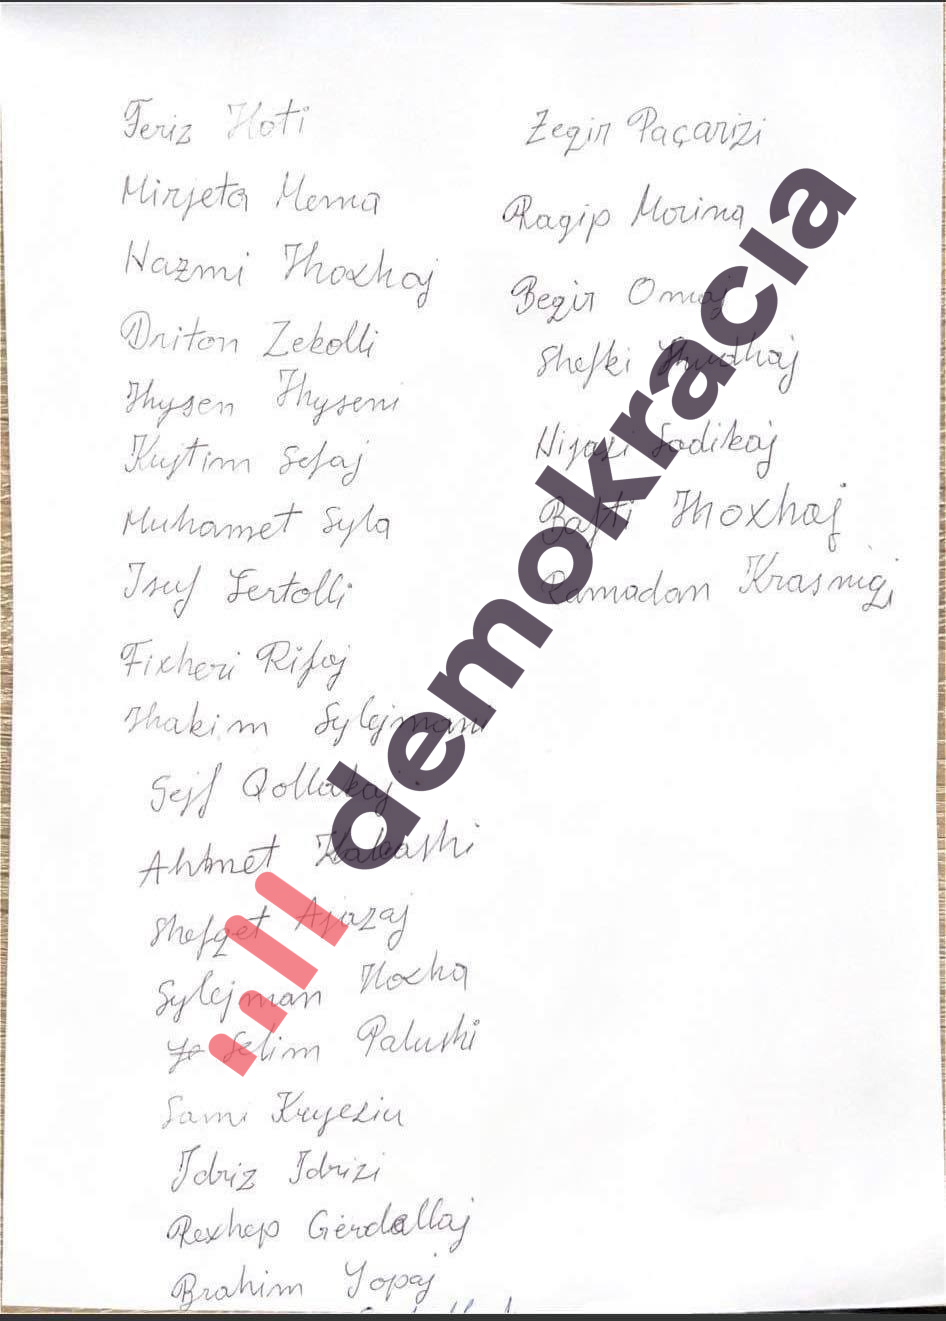 Feriz Hoti
Mirjeta Mema
Nazmi Hoxhaj
Driton Zekolli
Hysen Hyseni
Kujtim Sefaj
Muhamet Syla
Isuf Zertolli
Fixheri Rifaj
Hakim Sylejmani
Sejf Qollakaj
Ahmet Hakashi
Shefqet Ajazaj
Sylejman Hoxha
Selim Palushi
Sami Kryeziu
Idriz Idrizi
Rexhep Gërdallaj
Brahim Jopaj
Zeqir Paçarizi
Ragip Morina
Beqir Omaj
Shefki
Nijazi Sadikaj
Bafti Hoxhaj
Ramadan Krasniqi
demokracia